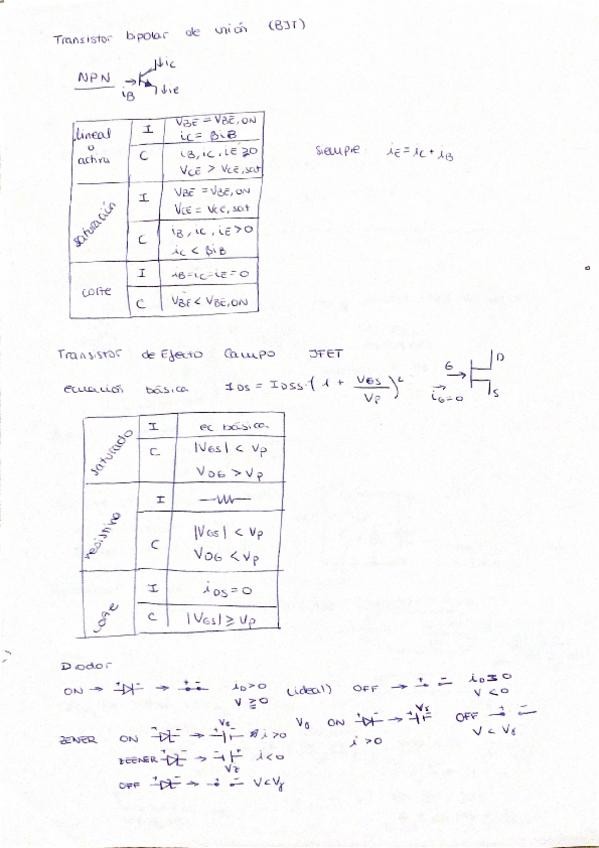 Transistor bipolar de unión (BJT)
NPN
↓ic
iB
↓iE
Lineal o activa
I
VBE = VBE,ON
ic = βiB
C
iB, ic, iE ≥ 0
VCE > VCE,sat
siempre iE = ic + iB
saturación
I
VBE = VBE,ON
VCE = VCE,sat
C
iB, ic, iE > 0
ic < βiB
corte
I
iB = ic = iE = 0
C
VBE < VBE,ON
Transistor de Efecto Campo JFET
ecuación básica IDS = IDSS · (1 + VGS/VP)²
G
D
S
iG=0
saturado
I
ec básica
C
|VGS| < VP
VDG > VP
resistivo
I
C
|VGS| < VP
VDG < VP
corte
I
iDS = 0
C
|VGS| ≥ VP
Diodos
ON → → iD>0 (ideal) OFF → iD≤0
V ≥ 0 V<0
ZENER ON → Vγ i>0 Vγ ON → Vγ OFF →
i>0 V < Vγ
ZEENER → VZ i<0
OFF → → V<Vγ